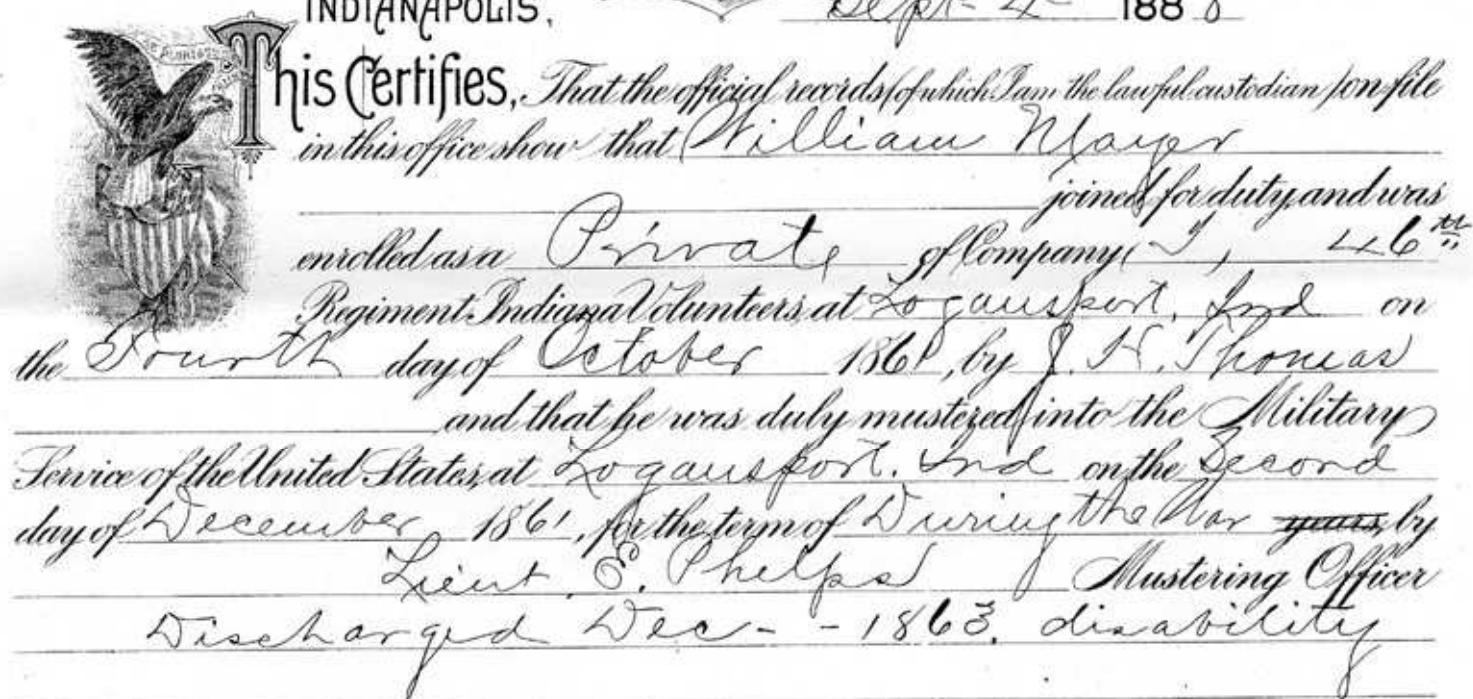 INDIANAPOLIS, Sept. 4 1888
This Certifies, That the official records (of which I am the lawful custodian) on file
in this office show that William Mayer
joined for duty and was
enrolled as a Private of Company I, 46th
Regiment Indiana Volunteers, at Logansport, Ind on
the Fourth day of October 1861, by J. H. Thomas
and that he was duly mustered into the Military
Service of the United States, at Logansport. Ind on the Second
day of December 1861, for the term of During the War years, by
Lieut. E. Phelps Mustering Officer
Discharged Dec - - 1863. disability